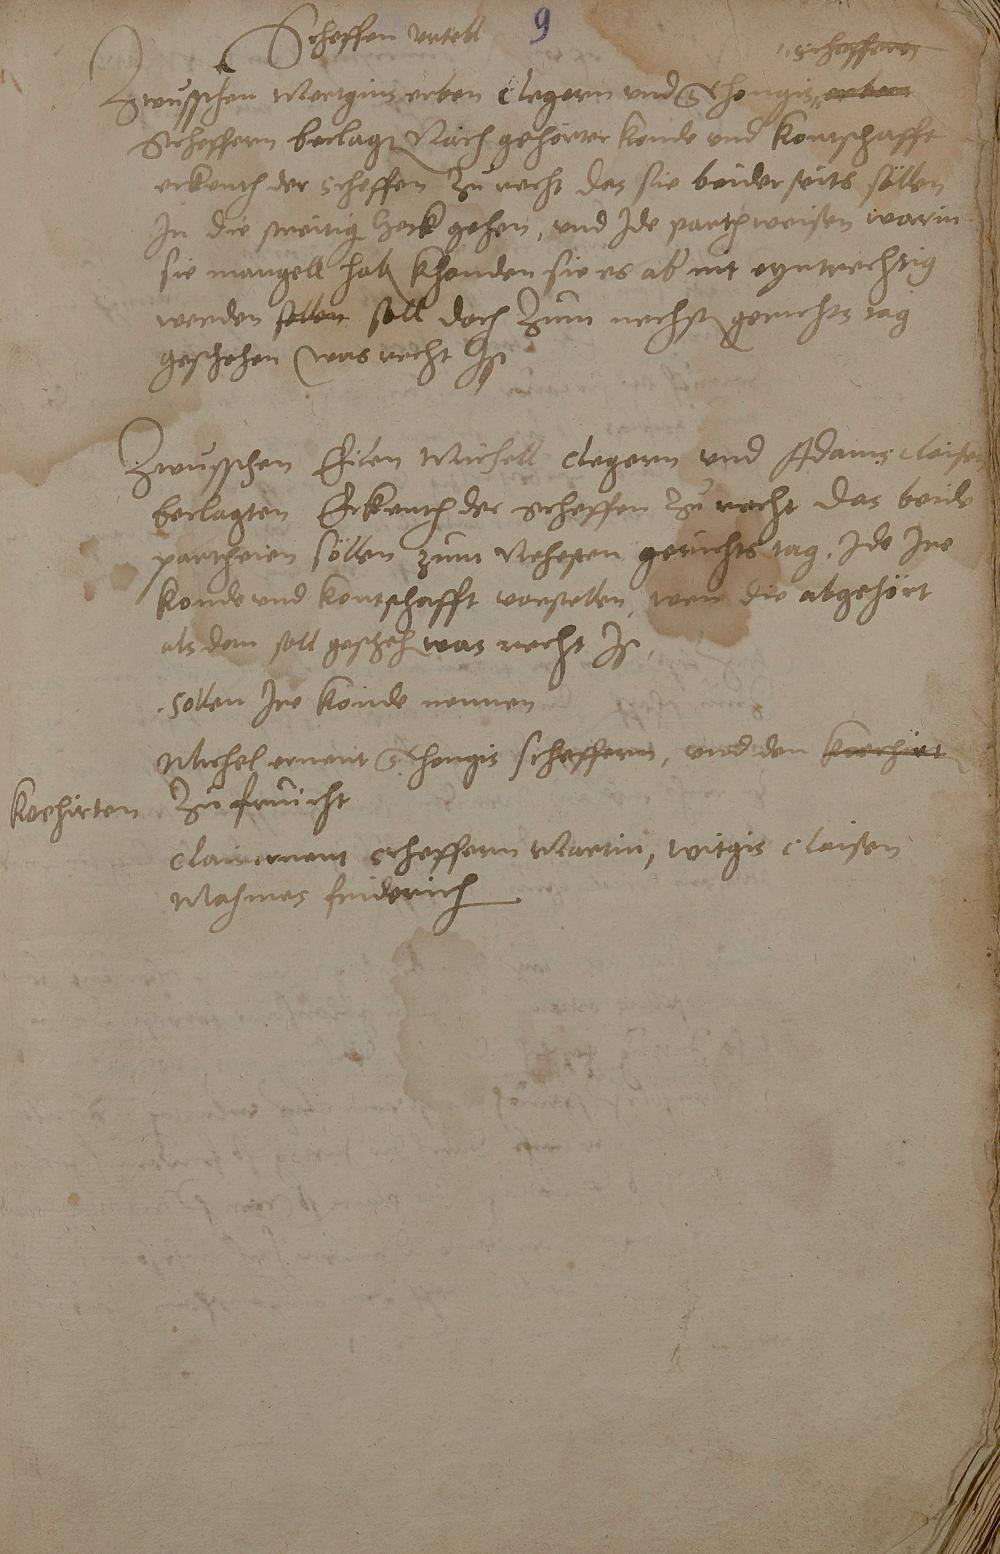 Scheffen urtell 9
scheffern
Zwusschen Mertgins erben Clegern und Thongis erben
Scheffern beclagt Nach gehörter konde und kontschafft
erkenth der scheffen Zu recht das sie beiderseits söllen
In die streitig heck gehen, und Ide parth weisen warin
sie mangell hab khonden sie es ab nit eyntrechtig
werden sollen soll doch Zum nechst gerichts tag
geschehen was recht Ist
Zwusschen Eilen Michell Clegern und Adams Claisen
beclagten Erkenth der Scheffen Zu recht das beide
partheien söllen zum Nehesten gerichts tag, Ide Ire
konde und kontschafft vorstellen, wen die abgehört
als dem soll gescheh was recht Ist,
Sollen Ire konde nennen
Michel ernent Thongis scheffern, und den koehirt
koehirten Zu frücht
Clais ernent scheffern Martin, witgis Claisen
Mahmes friderich